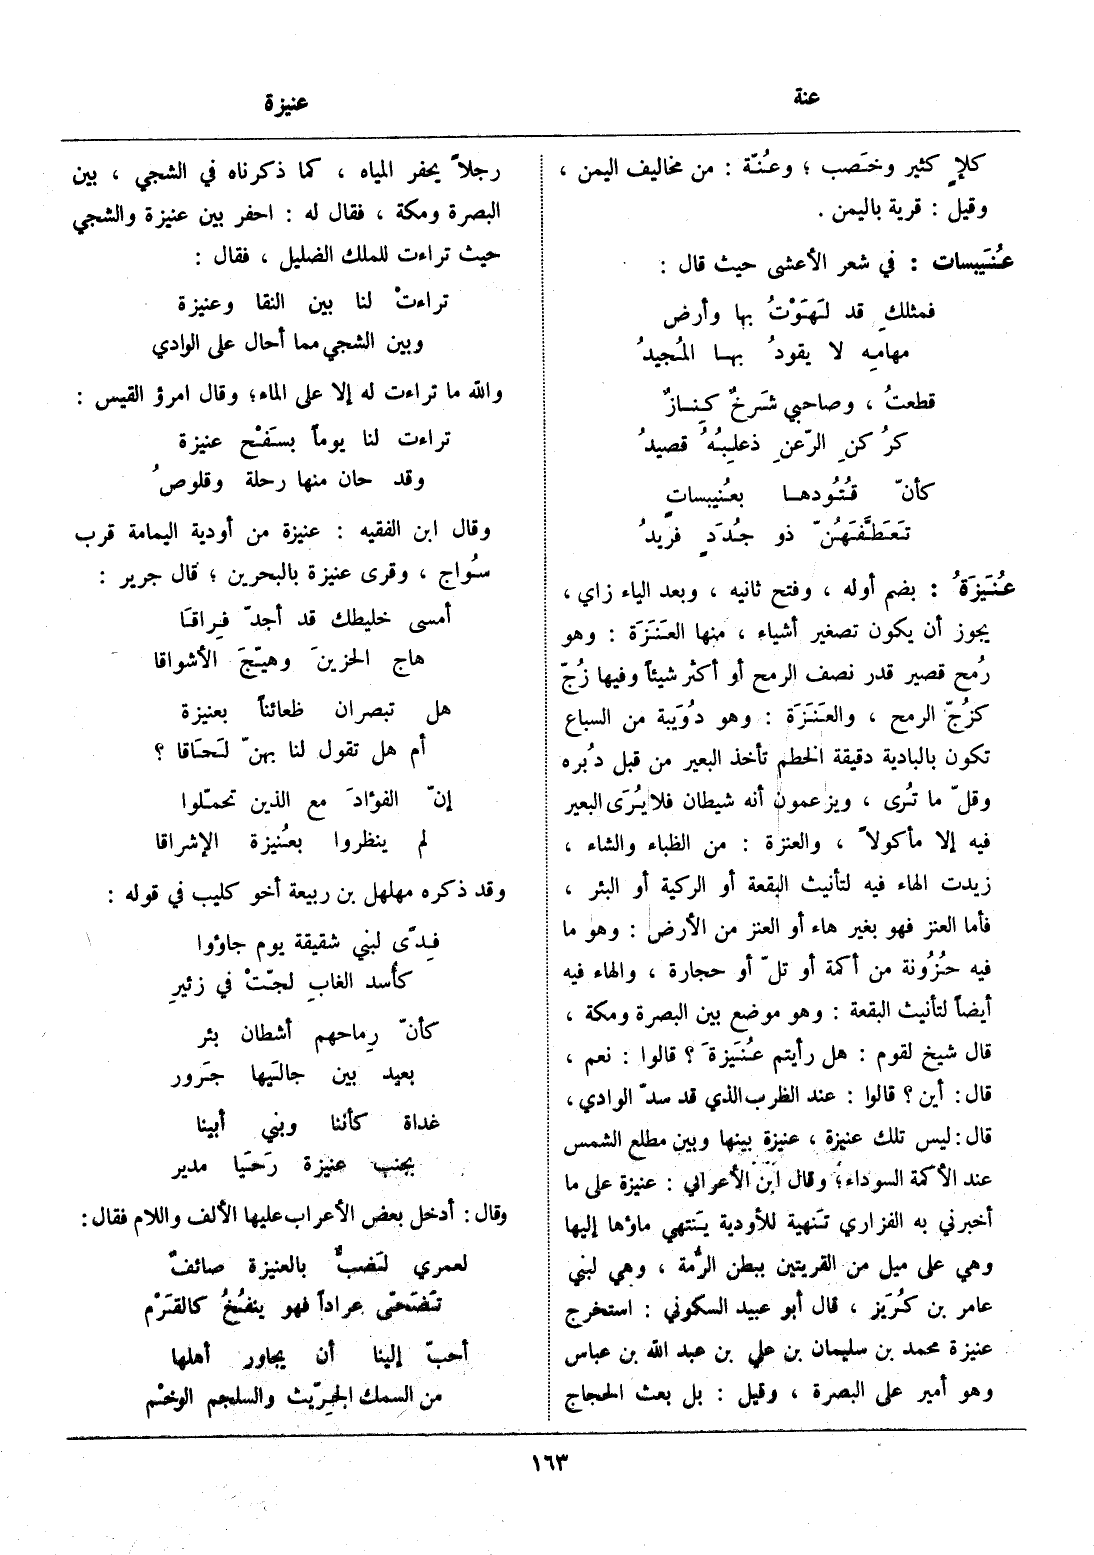 عنة
عنيزة
كلإٍ كثير وخصب ؛ وعُنّة : من مخاليف اليمن ،
وقيل : قرية باليمن .
عُنَيبسات : في شعر الأعشى حيث قال :
فمثلكِ قد لَهَوْتُ بها وأرض
مهامِه لا يقودُ بهـا المُجيدُ
قطعتُ ، وصاحبي شَرخٌ كِنـازٌ
كرُكنِ الرّعنِ ذعلِبَةُ قصيدُ
كأنّ قُتُودهـا بعُنيبساتٍ
تَعَطَّفَهُنّ ذو جُدَدٍ فريدُ
عُنَيزَةُ : بضم أوله ، وفتح ثانيه ، وبعد الياء زاي ،
يجوز أن يكون تصغير أشياء ، منها العَنَزَة : وهو
رُمح قصير قدر نصف الرمح أو أكثر شيئاً وفيها زُجّ
كزُجّ الرمح ، والعَنَزَة : وهو دُوَيبة من السباع
تكون بالبادية دقيقة الخطم تأخذ البعير من قبل دُبره
وقلّ ما تُرى ، ويزعمون أنه شيطان فلا يُرَى البعير
فيه إلا مأكولاً ، والعنزة : من الظباء والشاء ،
زيدت الهاء فيه لتأنيث البقعة أو الركية أو البئر ،
فأما العنز فهو بغير هاء أو العنز من الأرض : وهو ما
فيه حُزُونة من أكمة أو تلّ أو حجارة ، والهاء فيه
أيضاً لتأنيث البقعة : وهو موضع بين البصرة ومكة ،
قال شيخ لقوم : هل رأيتم عُنَيزةَ ؟ قالوا : نعم ،
قال : أين ؟ قالوا : عند الظرب الذي قد سدّ الوادي ،
قال : ليس تلك عنيزة ، عنيزة بينها وبين مطلع الشمس
عند الأكمة السوداء ؛ وقال ابن الأعرابي : عنيزة على ما
أخبرني به الفزاري تَنهية للأودية يَنتهي ماؤها إليها
وهي على ميل من القريتين ببطن الرُّمة ، وهي لبني
عامر بن كُرَيز ، قال أبو عبيد السكوني : استخرج
عنيزة محمد بن سليمان بن علي بن عبد الله بن عباس
وهو أمير على البصرة ، وقيل : بل بعث الحجاج
رجلاً يحفر المياه ، كما ذكرناه في الشجي ، بين
البصرة ومكة ، فقال له : احفر بين عنيزة والشجي
حيث تراءت للملك الضليل ، فقال :
تراءتْ لنا بين النقا وعنيزة
وبين الشجي مما أحال على الوادي
والله ما تراءت له إلا على الماء ؛ وقال امرؤ القيس :
تراءت لنا يوماً بسَفْح عنيزة
وقد حان منها رحلة وقلوصُ
وقال ابن الفقيه : عنيزة من أودية اليمامة قرب
سُواج ، وقرى عنيزة بالبحرين ؛ قال جرير :
أمسى خليطك قد أجدّ فِراقـا
هاج الحزينَ وهيّجَ الأشواقا
هل تبصران ظعائناً بعنيزة
أم هل تقول لنا بهنّ لَحَاقا ؟
إنّ الفؤادَ مع الذين تحمّلوا
لم ينظروا بعُنيزة الإشراقا
وقد ذكره مهلهل بن ربيعة أخو كليب في قوله :
فِدًى لبني شقيقة يوم جاؤوا
كأسد الغابِ لجتْ في زئيرِ
كأنّ رماحهم أشطان بئر
بعيد بين جالَيها جَرور
غداة كأننا وبني أبينا
بجنب عنيزة رَحَيا مدير
وقال : أدخل بعض الأعراب عليها الألف واللام فقال :
لعمري لَضبٌّ بالعنيزة صائفٌ
تَضَحّى عراداً فهو ينفُخُ كالقَرْم
أحبّ إلينا أن يجاور أهلها
من السمك الجِرّيث والسلجم الوخْم
١٦٣